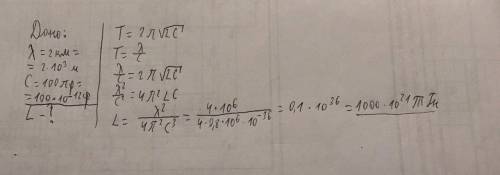 Дано:
λ = 2км =
= 2·10³ м
C = 100пФ =
= 100·10⁻¹²Ф
L - ?
T = 2π√LC
T = λ/c
λ/c = 2π√LC
λ²/c² = 4π²LC
L = λ²/4π²C³ = 4·10⁶/4·0,8·10⁶·10⁻³⁶ = 0,1·10³⁶ = 1000·10²¹ТГн